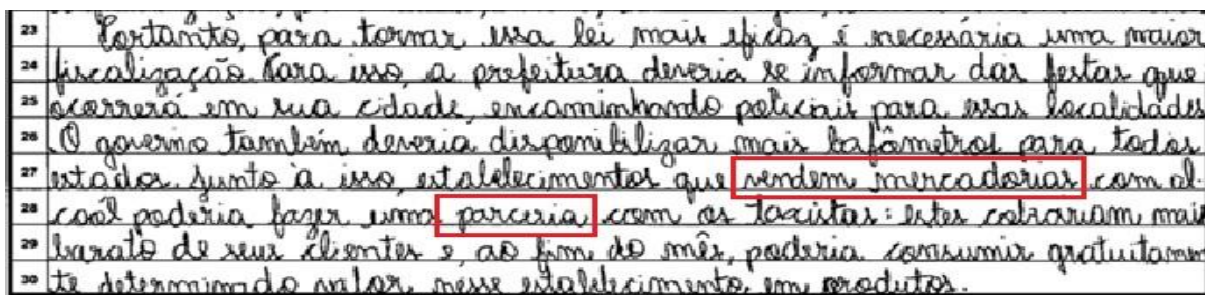 23 Portanto, para tornar essa lei mais eficaz é necessária uma maior
24 fiscalização. Para isso a prefeitura deveria se informar das festas que
25 ocorrerá em sua cidade, encaminhando policiais para essas localidades.
26 O governo também deveria disponibilizar mais bafômetros para todos
27 estados. Junto à isso, estabelecimentos que vendem mercadorias com al-
28 coól poderia fazer uma parceria com os taxistas: estes cobrariam mais
29 barato de seus clientes e, ao fim do mês, poderia consumir gratuitamen
30 te determinado valor, nesse estabelecimento, em produtos.